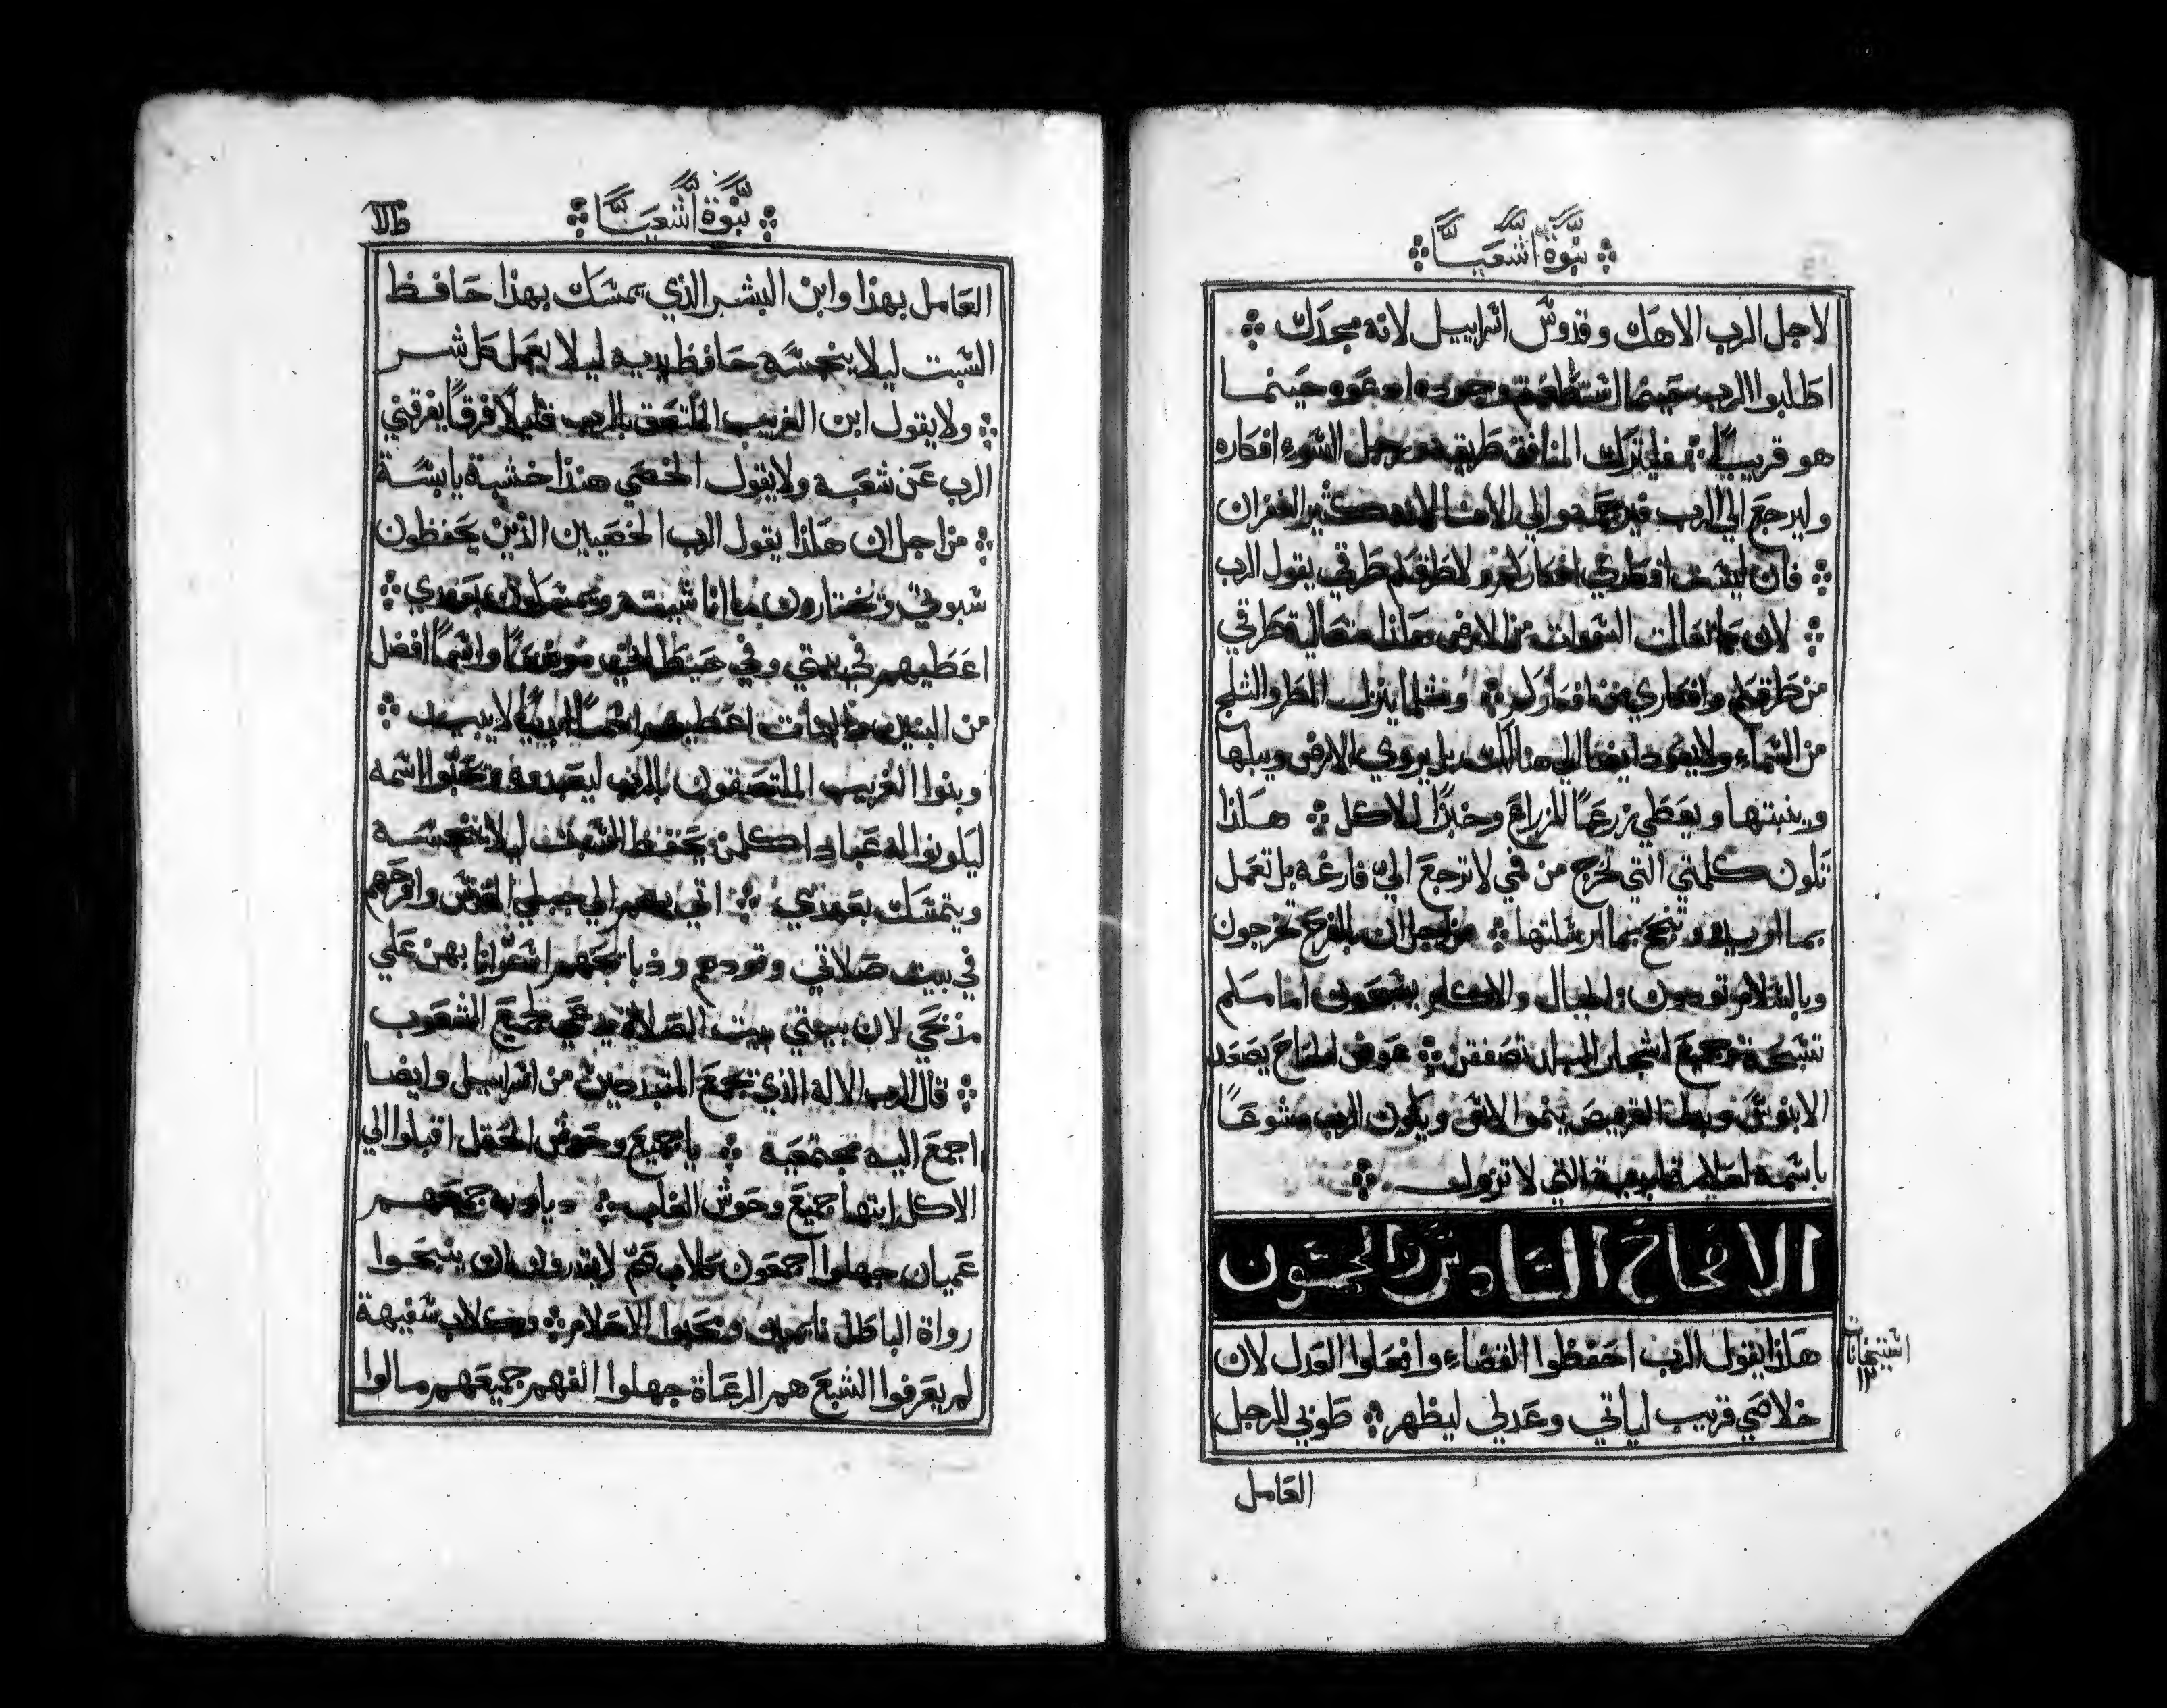 نبوة اشعيا
لاجل الرب الاهك وقدوس اسراييل لانه مجدك
اطلبوا الرب حينما استطعتم وجوده ادعوه حينما
هو قريب فليترك المنافق طريقه ورجل السوء افكاره
وليرجع الي الرب فيرحمه والي الاهنا لانه كثير الغفران
فان ليست افكاري افكاركم ولا طرقكم طرقي يقول الرب
لان كما تعالت السموات من الارض هكذا متعالية طرقي
من طرقكم وافكاري من افكاركم ومثلما ينزل المطر والثلج
من السماء ولا يعود ايضا الي هنالك بل يروي الارض ويبلها
وينبتها ويعطي زرعًا للزارع وخبزًا للاكل هكذا
تكون كلمتي التي تخرج من فمي لا ترجع الي فارغه بل تعمل
بما اريد وتنجح بما ارسلتها من اجل ان بالفرح تخرجون
وبالسلام تودون الجبال والاكام يسبحون امامكم
تسبحة وجميع اشجار البلد تصفقن عوض اللحاح يصعد
الابنوس وبدل القريص ينمو الاس ويكون الرب مشوعًا
باسمه لعلامة ابدية التي لا تزول
الاصحاح السادس والخمسون
هكذا يقول الرب احفظوا القضاء وافعلوا العدل لان
خلاصي قريب لياتي وعدلي ليظهر طوبي للرجل
العامل
نبوة اشعيا
العامل بهذا وابن البشر الذي يمسك بهذا حافظ
السبت ليلا ينجسه حافظ يديه ليلا يعمل كل شر
ولا يقول ابن الغريب الملتصق بالرب قايلًا فرقًا يفرقني
الرب عن شعبه ولا يقول الخصي هنذا خشبة يابسة
من اجل ان هكذا يقول الرب الخصيين الذين يحفظون
سبوتي ويختارون ما انا شيته ويمسكون بعهدي
اعطيهم في بيتي وفي حيطاني موضعًا واسمًا افضل
من البنين والبنات اعطيهم اسمًا ابديًا لا يبيد
وبنوا الغريب الملتصقون بالرب ليعبدوه ويحبوا اسمه
ليكونوا له عبادا كلمن يحفظ السبت ليلا ينجسه
ويتمسك بعهدي اتي بهم الي جبلي المقدس وافرحهم
في بيت صلاتي وقودهم وذبايحهم اسروا بهن علي
مذبحي لان بيتي بيت الصلاة يدعي لجميع الشعوب
قال الرب الاله الذي يجمع المتبددين من اسراييل وايضا
اجمع اليه مجتمعية يا جميع وحوش الحقل اقبلوا الي
الاكل ايتها جميع وحوش الغاب ديادبه جميعهم
عميان جهلوا اجمعون كلاب هم لا يقدرون ان ينبحوا
رواة الباطل نايمين ومحبوا الاحلام وكلاب سفيهة
لم يعرفوا الشبع هم الرعاة جهلوا الفهم جميعهم مالوا